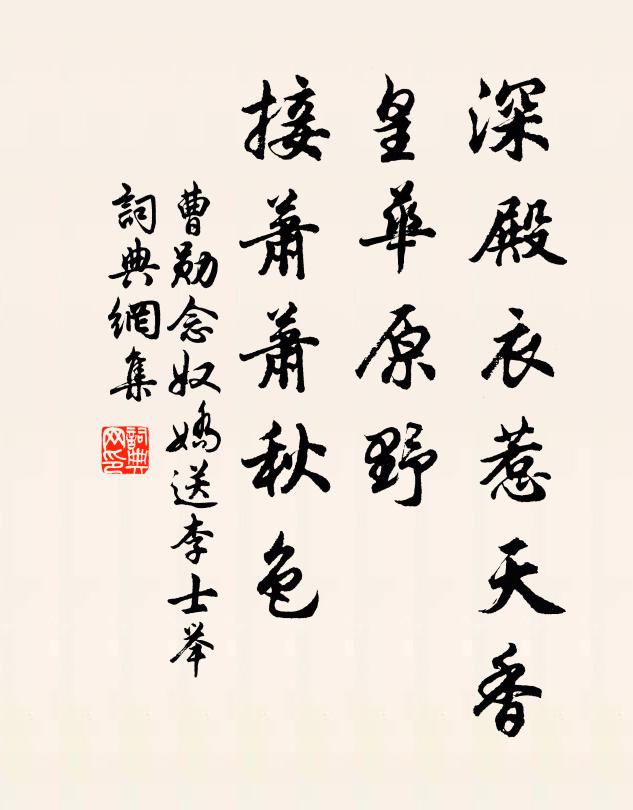 深殿衣惹天香
皇華原野
接蕭蕭秋色
曹勛念奴嬌送李士举
詞典網集
詞典网印